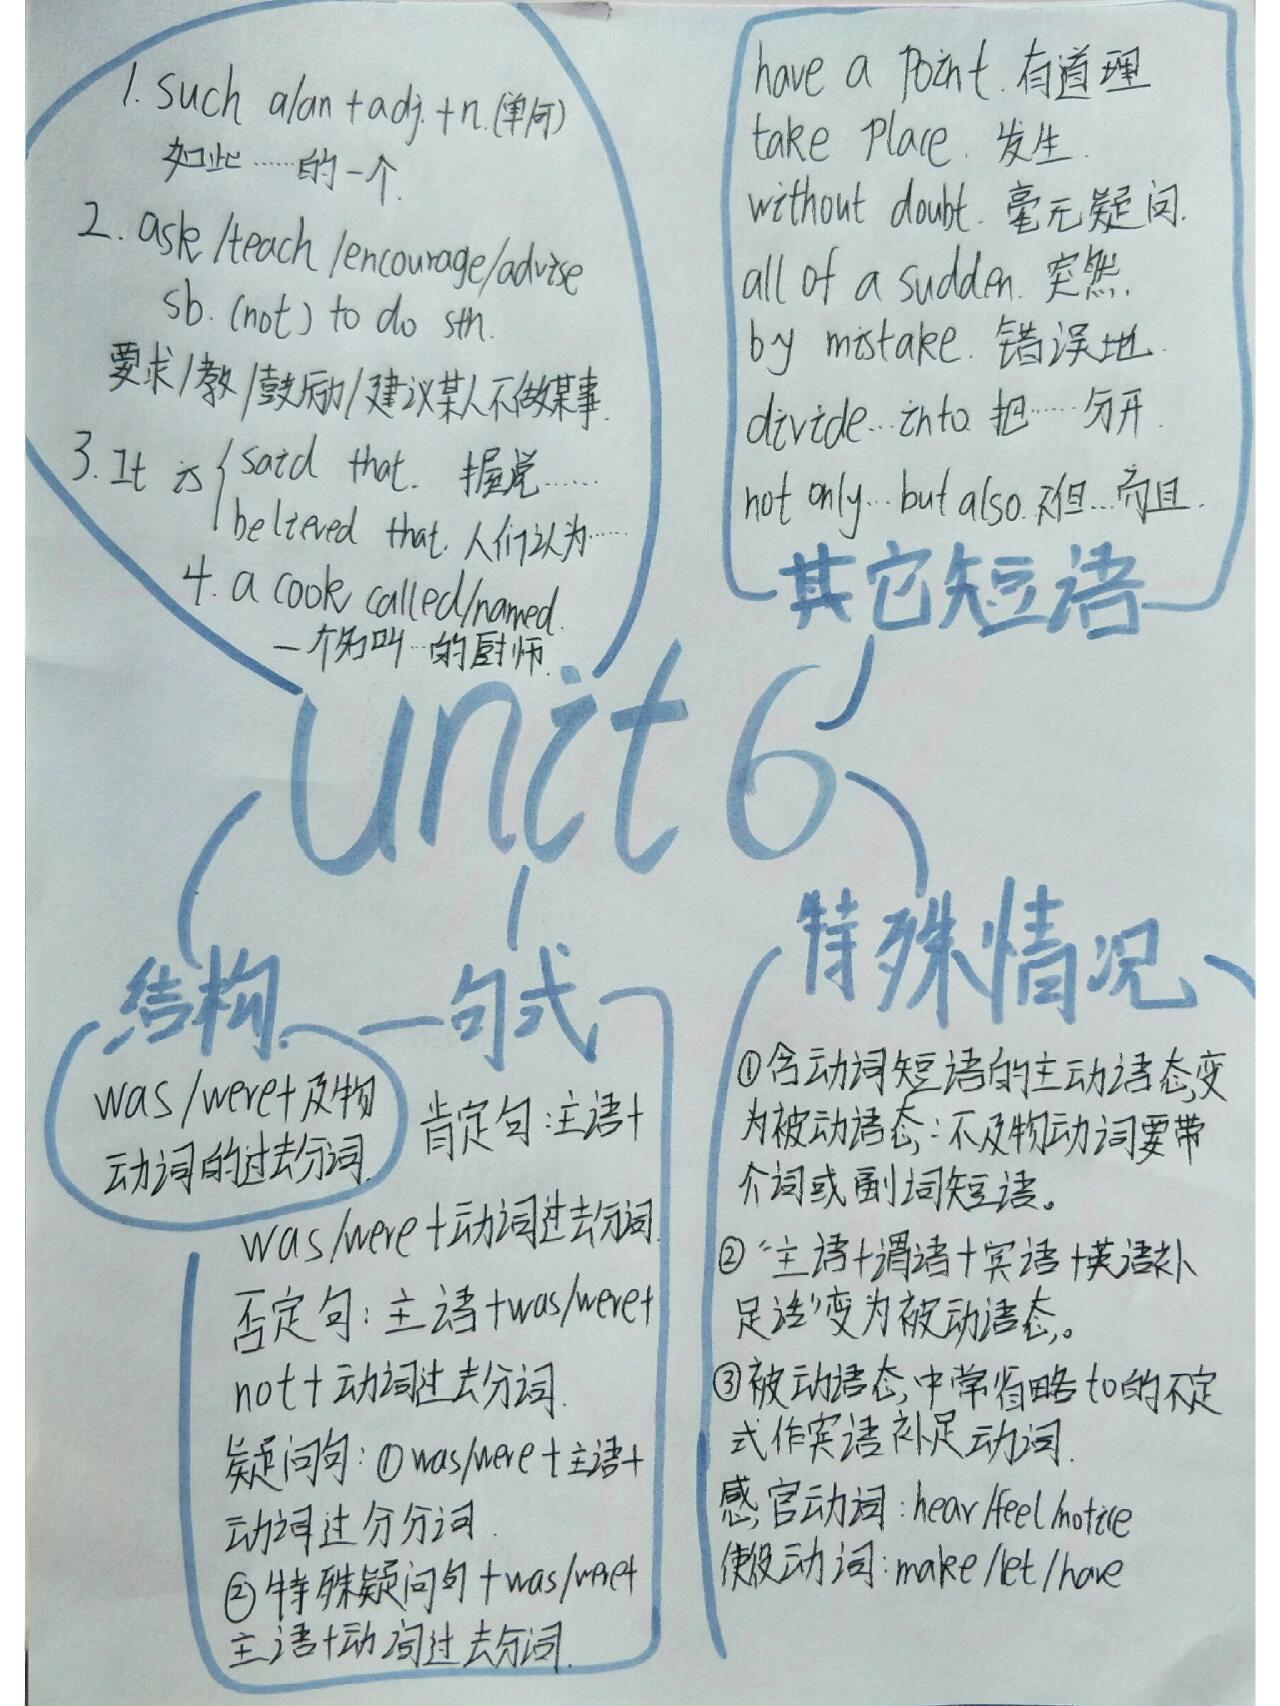 1. such a/an + adj. + n. (单可)
如此……的一个.
2. ask /teach /encourage/advise
sb. (not) to do sth.
要求/教/鼓励/建议某人不做某事.
3. It is said that. 据说……
believed that. 人们认为……
4. a cook called/named.
一个名叫…的厨师.
have a Point. 有道理
take Place. 发生.
without doubt. 毫无疑问.
all of a sudden. 突然.
by mistake. 错误地.
divide…into 把……分开.
not only…but also. 不但…而且.
其它短语
unit 6
结构
was/were+及物
动词的过去分词.
句式
肯定句:主语+
was/were+动词过去分词.
否定句:主语+was/were+
not+动词过去分词.
疑问句:①was/were+主语+
动词过分分词.
②特殊疑问句+was/were+
主语+动词过去分词.
特殊情况
①含动词短语的主动语态变
为被动语态:不及物动词要带
介词或副词短语。
②“主语+谓语+宾语+英语补
足语”变为被动语态。
③被动语态中常省略to的不定
式作宾语补足动词.
感官动词:hear/feel/notice
使役动词:make/let/have